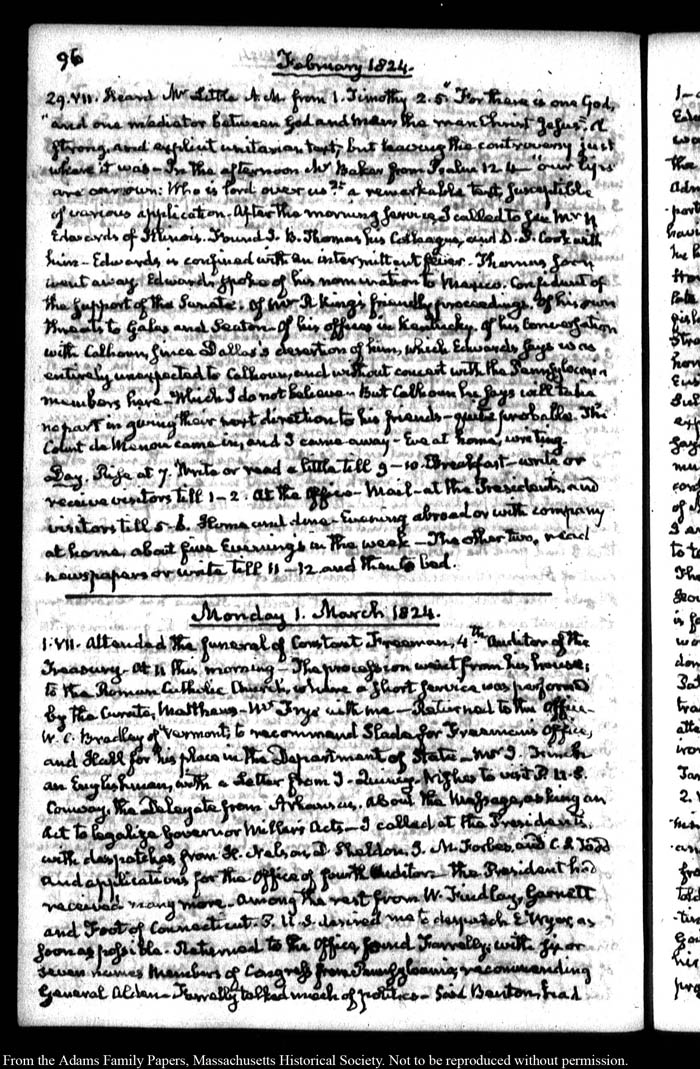 96
February 1824.
29. VII. Heard Mr Little A.M. from 1. Timothy 2. 5 "For there is one God,
"and one mediator between God and men, the man Christ Jesus". A
strong and explicit unitarian text, but leaving the controversy just
where it was - In the afternoon Mr Baker from Psalm 12. 4 "our lips
are our own: Who is lord over us?" a remarkable text, susceptible
of various application. After the morning service, I called to see Mr N
Edwards of Illinois. Found J. B. Thomas his Colleague, and D. P. Cook with
him - Edwards is confined with an intermittent fever. Thomas soon
went away. Edwards spoke of his nomination to Mexico. Confident of
the support of the Senate. Of Mr R. King's friendly proceedings. Of his own
threats to Gales and Seaton - Of his offices in Kentucky. Of his Conversation
with Calhoun, since Dallas's desertion of him, which Edwards says was
entirely unexpected to Calhoun, and without concert with the Pennsylvania
members here. Which I do not believe - But Calhoun he says will take
no part in giving their next direction to his friends - quite probable. The
Count de Menou came in, and I came away - Eve at home, writing.
Day. Rise at 7. Write or read a little till 9 - 10. Breakfast - write or
receive visitors till 1 - 2. At the Office - Mail - at the Presidents, and
visitors till 5 - 6. Home and dine - Evening abroad or with company
at home, about five Evenings in the week - The other two, read
newspapers or write till 11 - 12 and then to bed.
Monday 1. March 1824.
1. VII. Attended the funeral of Constant Freeman, 4th Auditor of the
Treasury - At 11 this morning - The procession went from his house,
to the Roman Catholic Church, where a short service was performed
by the Curate, Matthews - Mr Frye with me - Returned to the Office -
W. C. Bradley of Vermont, to recommend Slade for Freeman's Office,
and Hall for his place in the Department of State - Mr J. Finch
an Englishman, with a Letter from J. Quincy. Wishes to visit P. U. S.
Conway, the Delegate from Arkansas. About the Message, asking an
Act to legalize Governor Miller's Acts - I called at the Presidents,
with despatches from H. Nelson, D. Sheldon, J. M. Forbes, and C. S. Todd
and applications for the Office of fourth Auditor - the President had
received many more - Among the rest from W. Findlay, Garnett
and Foot of Connecticut. P. U. S. desired me to despatch E. Wyer, as
soon as possible. Returned to the Office, found Farrelly, with six or
seven names Members of Congress from Pennsylvania, recommending
General Alden - Farrelly talked much of politics - Said Benton, had
From the Adams Family Papers, Massachusetts Historical Society. Not to be reproduced without permission.